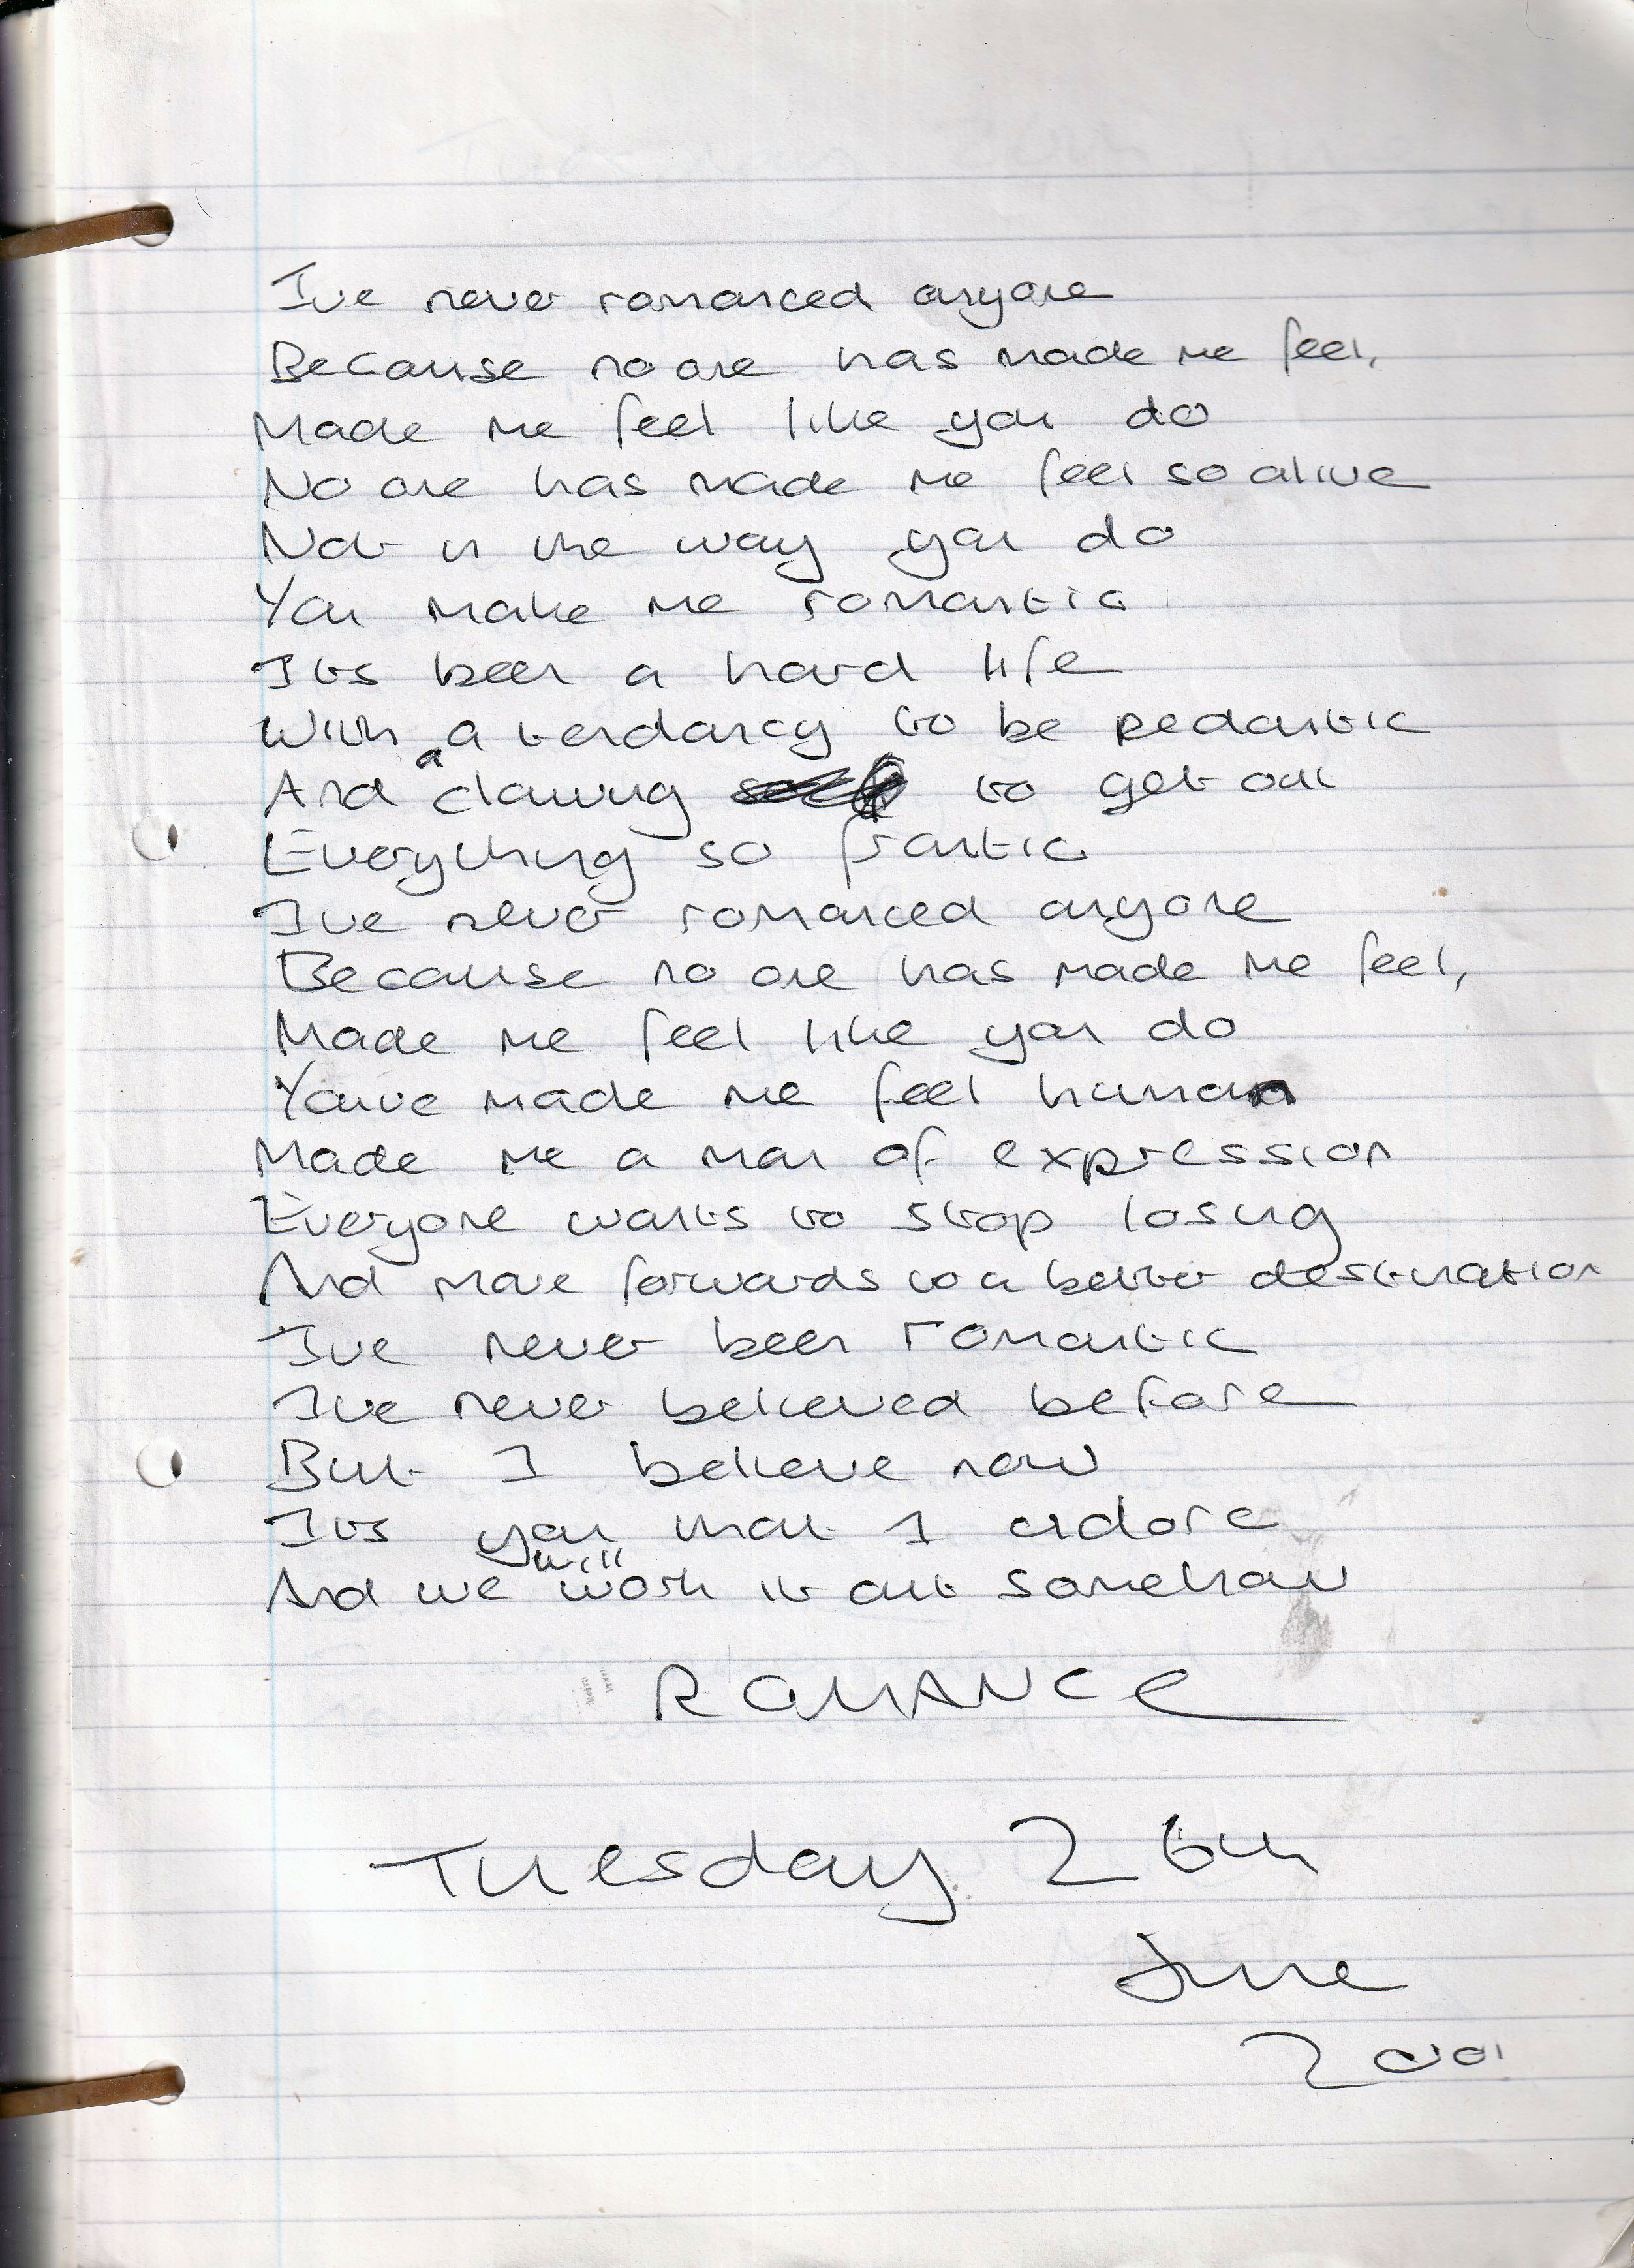 Ive never romanced anyone
Because no one has made me feel,
Made me feel like you do
No one has made me feel so alive
Not in the way you do
You make me romantic
Its been a hard life
With a tendancy to be pedantic
And a clawing to get out
Everything so frantic
Ive never romanced anyone
Because no one has made me feel,
Made me feel like you do
Youve made me feel human
Made me a man of expression
Everyone wants to stop losing
And move forwards to a better destination
Ive never been romantic
Ive never believed before
But I believe now
Its you that I adore
And we will work it out somehow
ROMANCE
Tuesday 26th
June
2001